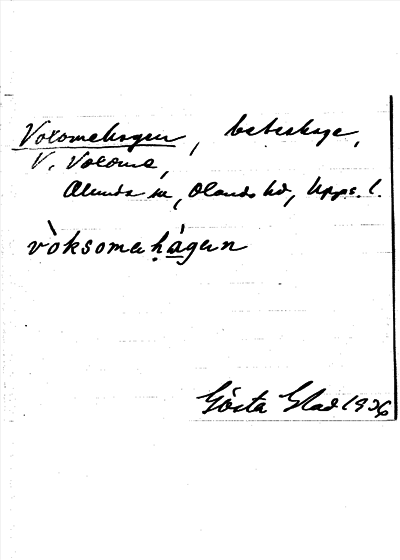 Voxomehagen, beteshage,
V. Voxome,
Alunda sn, Olands hd, Upps. l.
vòksomahágan
Gösta Glad 1936